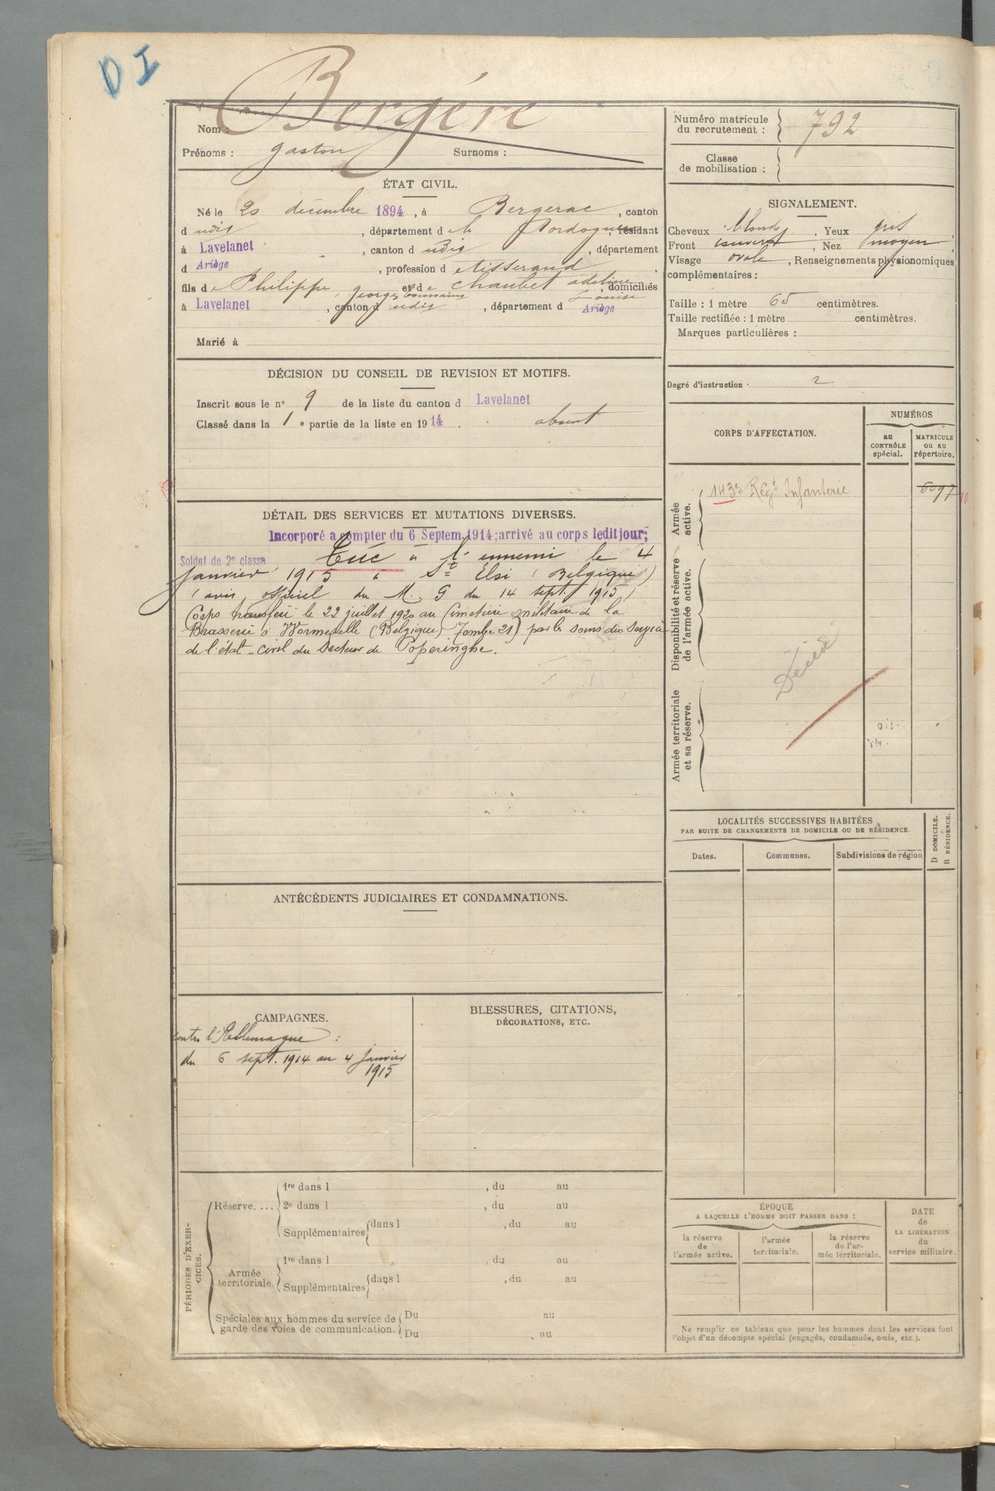 D I
Nom : Bergère
Prénoms : gaston Surnoms :
ÉTAT CIVIL.
Né le 20 décembre 1894, à Bergerac, canton
d udit, département d e la Dordogne, résidant
à Lavelanet, canton d udit, département
d Ariège, profession d e tisserand
fils d e Philippe georges et d e chaubet adeline Louise, domiciliés
à Lavelanet, canton d udit, département d Ariège
Marié à
DÉCISION DU CONSEIL DE REVISION ET MOTIFS.
Inscrit sous le n° 9 de la liste du canton d Lavelanet
Classé dans la 1 e partie de la liste en 1914. absent
DÉTAIL DES SERVICES ET MUTATIONS DIVERSES.
Incorporé à compter du 6 Septem. 1914; arrivé au corps ledit jour;
Soldat de 2e classe Tué à l'ennemi le 4
janvier 1915 à St Elsi (Belgique)
(avis officiel du M. G du 14 sept 1915)
Corps transféré le 22 juillet 1920 au Cimetière militaire de la
Brasserie à Vormezelle (Belgique) Tombe 21) par les soins du Service
de l'état-civil du Secteur de Poperinghe.
ANTÉCÉDENTS JUDICIAIRES ET CONDAMNATIONS.
CAMPAGNES.
contre l'Allemagne :
du 6 sept. 1914 au 4 janvier
1915
BLESSURES, CITATIONS,
DÉCORATIONS, ETC.
PÉRIODES D'EXERCICES.
Réserve....
1re dans l , du au
2e dans l , du au
Supplémentaires dans l , du au
Armée territoriale.
1re dans l , du au
Supplémentaires dans l , du au
Spéciales aux hommes du service de garde des voies de communication.
Du au
Du au
Numéro matricule
du recrutement : 792
Classe
de mobilisation :
SIGNALEMENT.
Cheveux blonds, Yeux gris
Front couvert, Nez moyen
Visage ovale, Renseignements physionomiques
complémentaires :
Taille : 1 mètre 65 centimètres.
Taille rectifiée : 1 mètre centimètres.
Marques particulières :
Degré d'instruction 2
CORPS D'AFFECTATION.
NUMÉROS
au CONTRÔLE spécial.
MATRICULE ou au répertoire.
Armée active.
143e Régt Infanterie
Disponibilité et réserve de l'armée active.
Décédé
Armée territoriale et sa réserve.
LOCALITÉS SUCCESSIVES HABITÉES
PAR SUITE DE CHANGEMENTS DE DOMICILE OU DE RÉSIDENCE.
Dates.
Communes.
Subdivisions de région
D DOMICILE.
R RÉSIDENCE.
ÉPOQUE
A LAQUELLE L'HOMME DOIT PASSER DANS :
la réserve de l'armée active.
l'armée territoriale.
la réserve de l'armée territoriale.
DATE de LA LIBÉRATION du service militaire.
Ne remplir ce tableau que pour les hommes dont les services font
l'objet d'un décompte spécial (engagés, condamnés, omis, etc.).